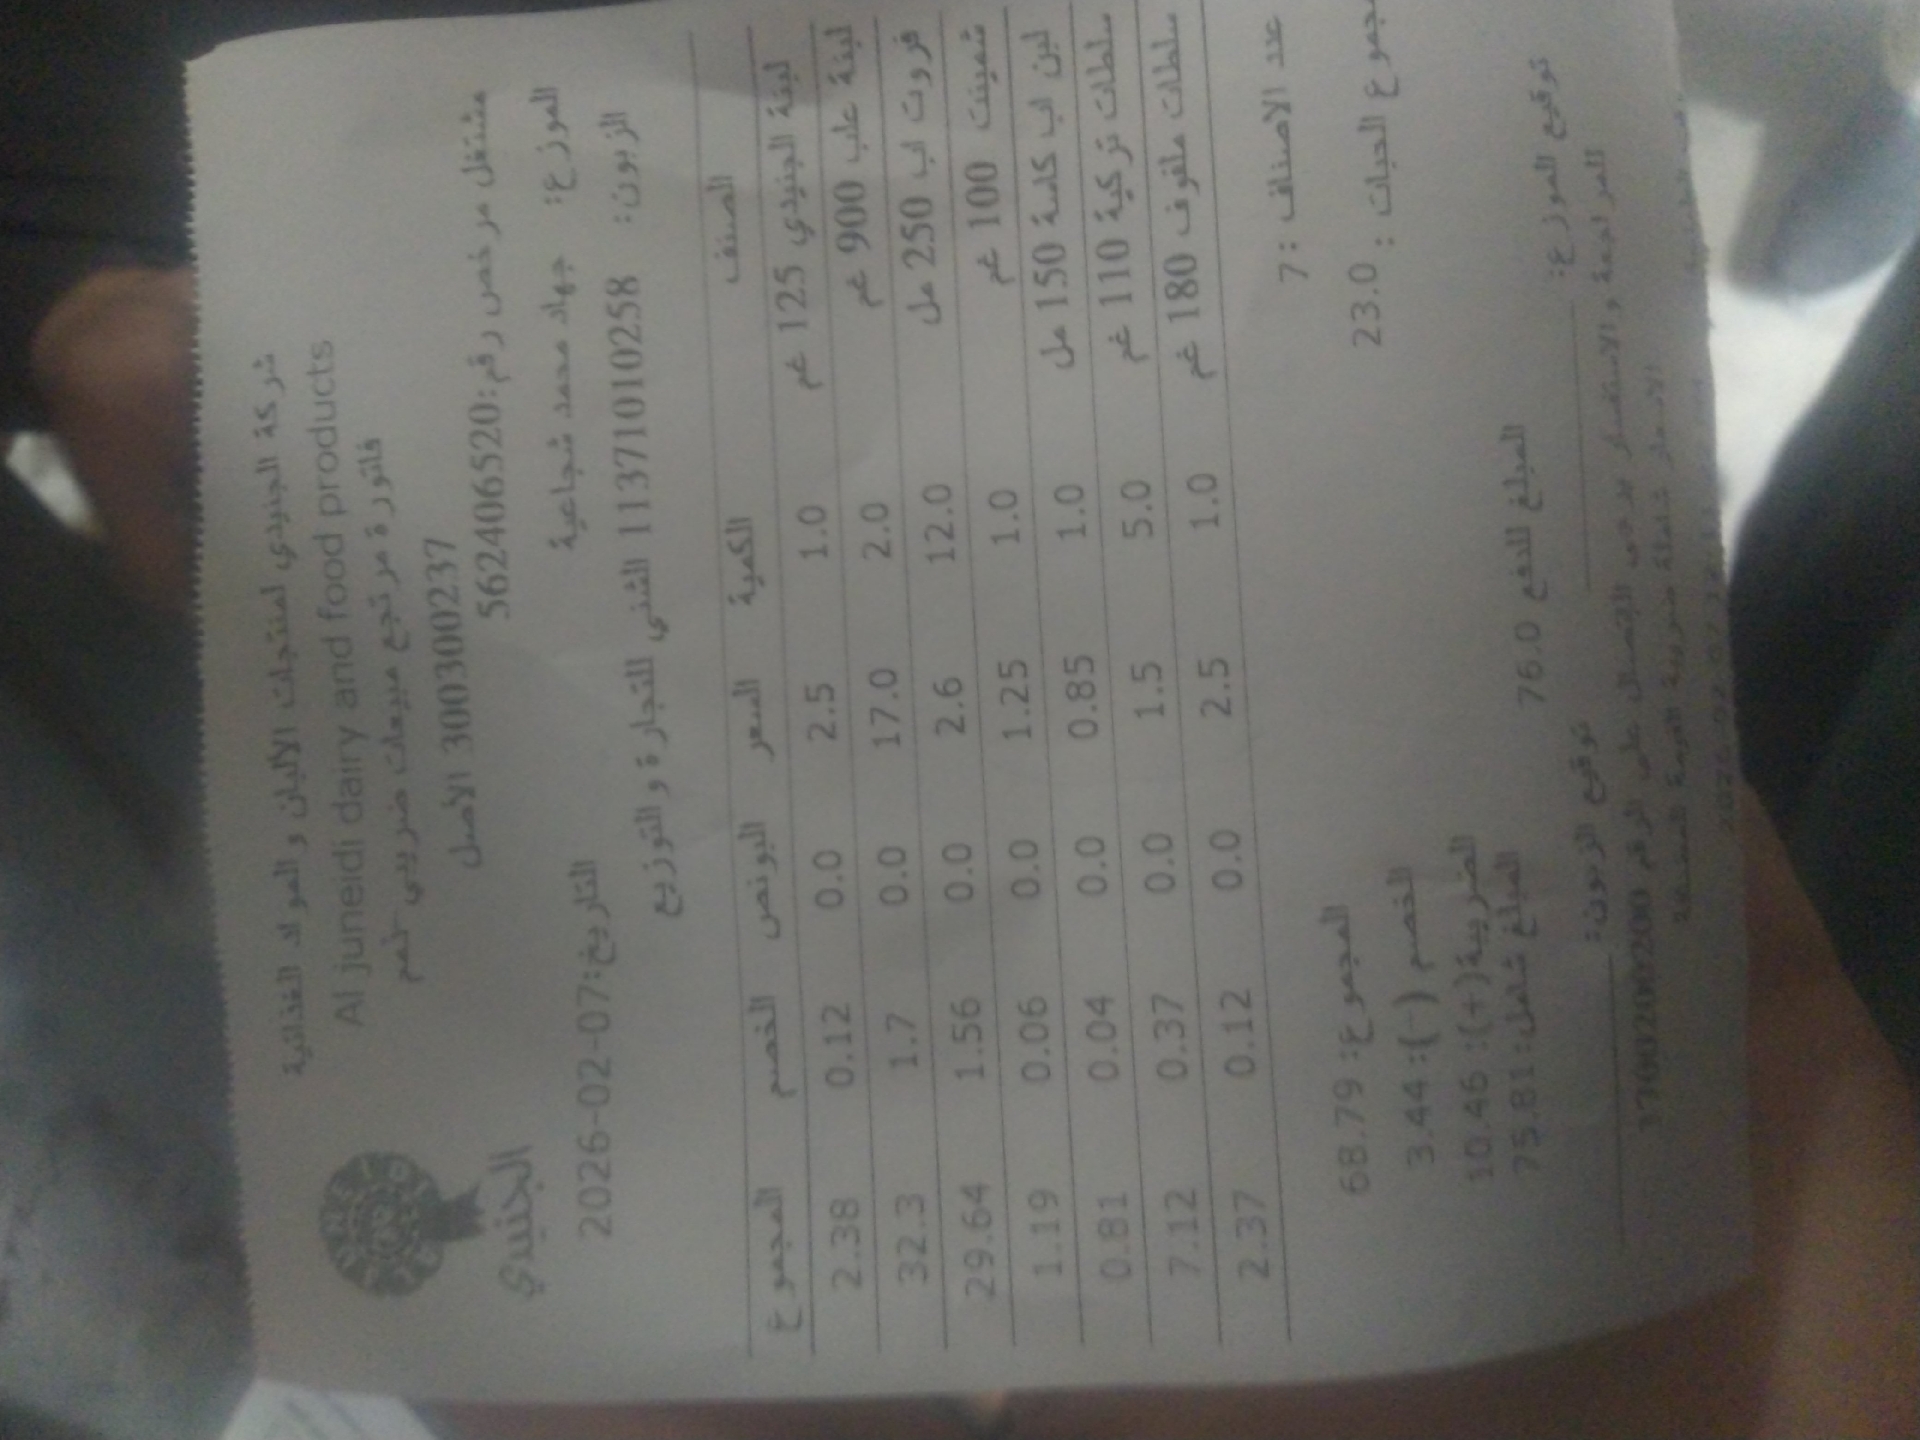 شركة الجنيدي لمنتجات الالبان و المواد الغذائية
Al juneidi dairy and food products
فاتورة مرتجع مبيعات ضريبي
3003002237 الأصل
مشتغل مرخص رقم:562406520
الجنيدي
الموزع: جهاد محمد شجاعية
التاريخ:2026-02-07
الزبون: 1137101010258 الشني للتجارة و التوزيع
الصنف الكمية السعر البونص الخصم المجموع
لبنة الجنيدي 125 غم 1.0 2.5 0.0 0.12 2.38
لبنة علب 900 غم 2.0 17.0 0.0 1.7 32.3
فروت اب 250 مل 12.0 2.6 0.0 1.56 29.64
شمينت 100 غم 1.0 1.25 0.0 0.06 1.19
لبن اب كاسة 150 مل 1.0 0.85 0.0 0.04 0.81
سلطات تركية 110 غم 5.0 1.5 0.0 0.37 7.12
سلطات ملفوف 180 غم 1.0 2.5 0.0 0.12 2.37
عدد الاصناف :7
المجموع: 68.79
مجموع الحبات : 23.0
الخصم (-): 3.44
الضريبة(+): 10.46
المبلغ شامل: 75.81
المبلغ للدفع 76.0
توقيع الموزع:
توقيع الزبون:
للمراجعة و الاستفسار يرجى الاتصال على الرقم 1700200200
الاسعار شاملة ضريبة القيمة المضافة